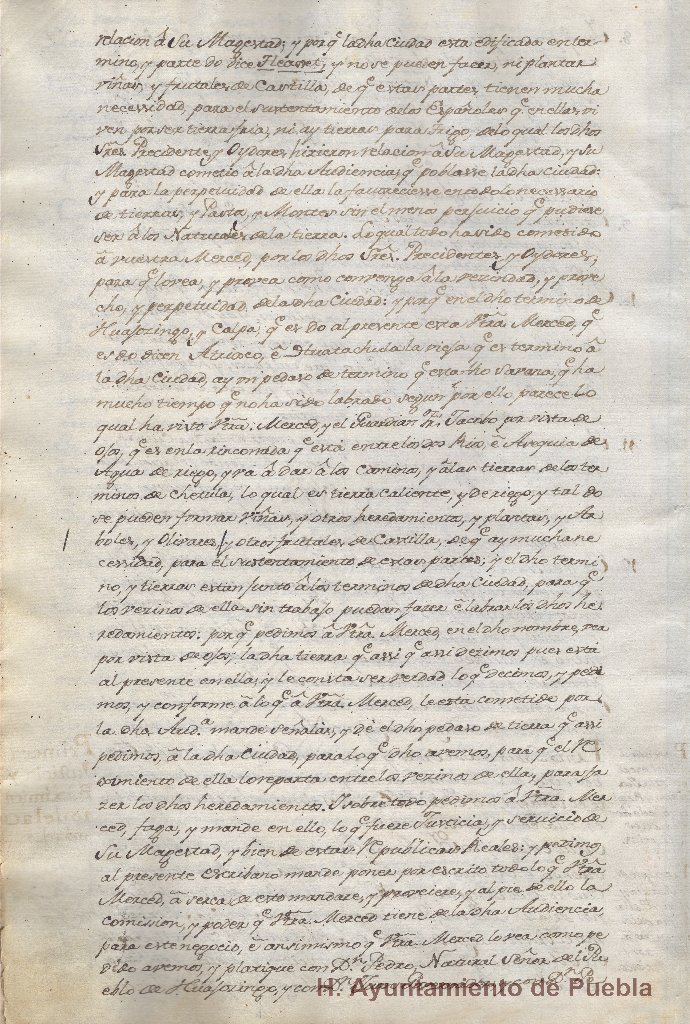 relacion â Su Magestad; y porq̃ la dha Ciudad esta edificada en ter-
mino, y parte do dice y no se pueden facer, ni plantar
viñas, y frutales de Castilla, de q̃ estas partes tienen mucha
necessidad, para el sustentamiento de los Españoles q̃ en ellas vi
ven por ser tierra fria, ni ay tierras para trigo, de lo qual los dhos
Srẽs. Precidente, y Oydores hizieron relacion â Su Magestad, y Su
Magestad cometio â la dha Audiencia, q̃ poblasse la dha Ciudad:
y para la perpetuidad de ella la favoreciesse en todo lo necessario
de tierras, y Pasto, y Montes sin el menos perjuicio q̃ pudiese
ser â los Naturales de la tierra. Lo qual todo ha sido cometido
â vuestra Merced, por los dhos Srẽs. Precidente, y Oydores,
para q̃ lo vea, y provea como convenga â la vezindad, y prove
cho, y perpetuidad de la dha Ciudad: y porq̃ en el dho termino de
Huaxozingo, y Calpa, q̃ es do al presente esta Vtrã. Merced, q̃
es do dicen ê la vieja q̃ es termino â
la dha Ciudad, ay un pedaso de termino q̃ esta savana, q̃ ha
mucho tiempo q̃ no ha sido labrado segun por ello parece lo
qual ha visto Vtrã. Merced, y el Guardian Fr. Jacobo por vista de
ojos, q̃ es en la rinconada q̃ está entre los dos Rios, ê Asequia de
Agua de riego, y vá â dar â los Caminos, y â las tierras de los ter
minos de Chetula, lo qual es tierra caliente, y de riego, y tal do
se pueden formar Viñas, y otros heredamientos, y plantas, y Ar
boles, y Olivares, y otros frutales de Castilla, de q̃ ay mucha ne
cessidad, para el sustentamiento de estas partes; y el dho termi
no, y tierras están junto â los terminos de dha Ciudad, para q̃
los vezinos de ella sin trabajo puedan fazer ê labrar los dhos he
redamientos: porq̃ pedimos â Vtrã. Merced, en el dho nombre, vea
por vista de ojos, la dha tierra q̃ assi q̃ assi dezimos pues está
al presente en ella; y le consta ser verdad lo q̃ decimos, y pedi
mos, y conforme â lo q̃ â Vtrã. Merced, le esta cometido por
la dha Aud.ª mande señalar, y dê el dho pedaso de tierra q̃ assi
pedimos, â la dha Ciudad, para lo q̃ dho avemos, para q̃ el
de ella lo reparta entre los vezinos de ella, para fa
zer los dhos heredamientos. Y sobre todo pedimos â Vtrã. Mer
ced, faga, y mande en ello, lo q̃ fuere Justicia, y servicio de
Su Magestad, y bien de estas Republicas Reales: y pedimos
al presente Escribano mande poner por escrito todo lo q̃ Vtrã
Merced, â serca de esto mandare, y proveiere, y al pie de ello la
comission, y poder q̃ Vtrã. Merced tiene de la dha Audiencia,
para este negocio, ê ansimismo q̃ Vtrã. Merced lo vea como pe
dido avemos, y platique con Dn. Pedro, Natural Señor del Pu
eblo de Huaxozingo, y con
H. Ayuntamiento de Puebla